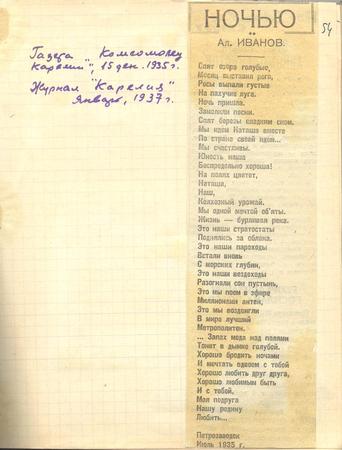 Газета "Комсомолец
Карелии", 15 дек. 1935 г.
Журнал "Карелия"
Январь, 1937 г.
54
НОЧЬЮ
Ал. ИВАНОВ.
Спят озера голубые,
Месяц выставил рога,
Росы выпали густые
На пахучие луга.
Ночь пришла.
Замолкли песни.
Спят березы сладким сном.
Мы идем Наташа вместе
По стране своей идем...
Мы счастливы.
Юность наша
Беспредельно хороша!
На полях цветет,
Наташа,
Наш,
Колхозный урожай.
Мы одной мечтой об'яты.
Жизнь — бурливая река.
Это наши стратостаты
Поднялись за облака.
Это наши пароходы
Встали вновь
С морских глубин,
Это наши вездеходы
Разогнали сон пустынь,
Это мы поем в эфире
Миллионами антен,
Это мы воздвигли
В мире лучший
Метрополитен.
... Запах меда над полями
Тонет в дымке голубой.
Хорошо бродить ночами
И мечтать вдвоем с тобой
Хорошо любить друг друга,
Хорошо любимым быть
И с тобой,
Моя подруга
Нашу родину
Любить...
Петрозаводск
Июль 1935 г.